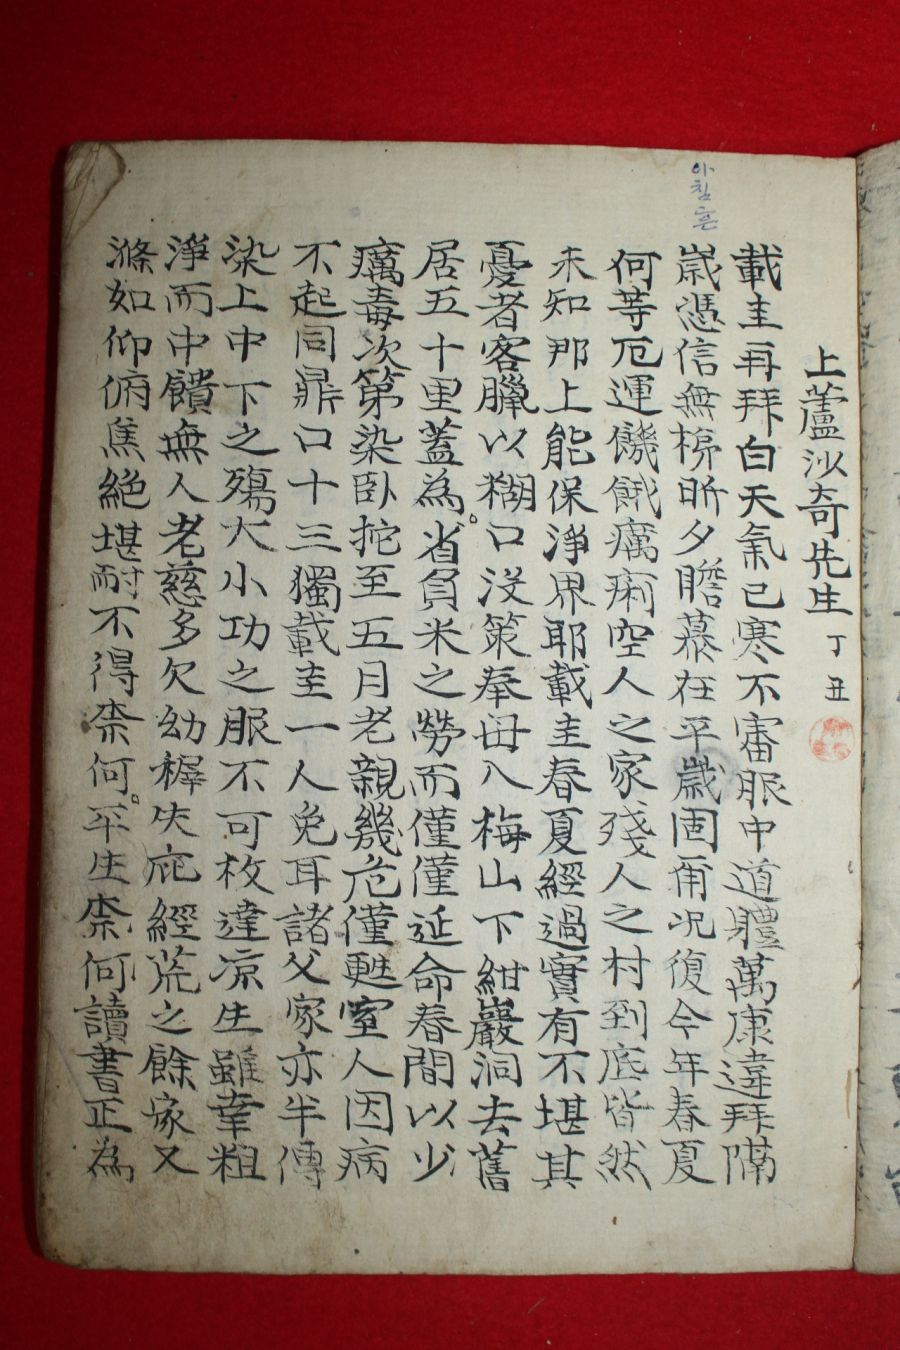 上蘆沙奇先生 丁丑
載圭再拜白天氣已寒不審服中道體萬康違拜隔
歲憑信無梯昕夕瞻慕在平歲固爾况復今年春夏
아침흔
何等厄運饑餓癘痢空人之家殘人之村到底皆然
未知那上能保淨界耶載圭春夏經過實有不堪其
憂者客臘以糊口没策奉母入梅山下紺巖洞去舊
居五十里蓋為。省負米之勞而僅僅延命春間以少
癘毒次第染卧拕至五月老親幾危僅甦室人因病
不起同鼎口十三獨載圭一人免耳諸父家亦半傳
染上中下之殤大小功之服不可枚達凉生雖幸粗
淨而中饋無人老慈多欠幼穉失庇經荒之餘家又
滌如仰俯焦絶堪耐不得柰何。平生柰何讀書正為